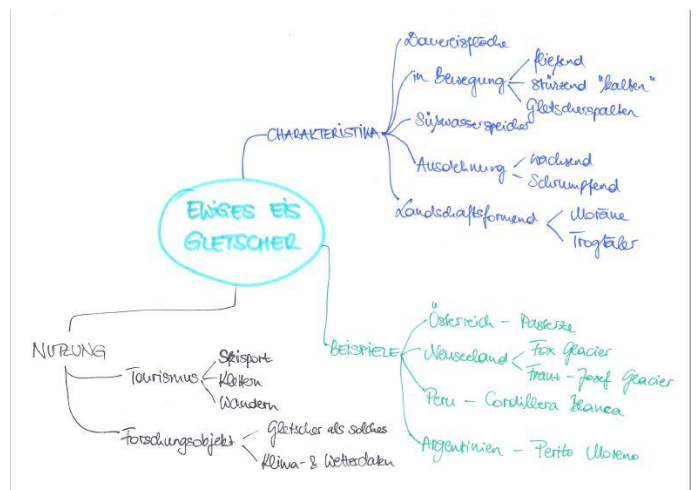 EWIGES EIS
GLETSCHER
CHARAKTERISTIKA
Dauereisfläche
in Bewegung
fließend
stürzend "kalben"
Gletscherspalten
Süßwasserspeicher
Ausdehnung
wachsend
Schrumpfend
Landschaftsformend
Moräne
Trogtäler
BEISPIELE
Österreich - Pasterze
Neuseeland
Fox Glacier
Franz-Josef Glacier
Peru - Cordillera Blanca
Argentinien - Perito Moreno
NUTZUNG
Tourismus
Skisport
Klettern
Wandern
Forschungsobjekt
Gletscher als solches
Klima- & Wetterdaten